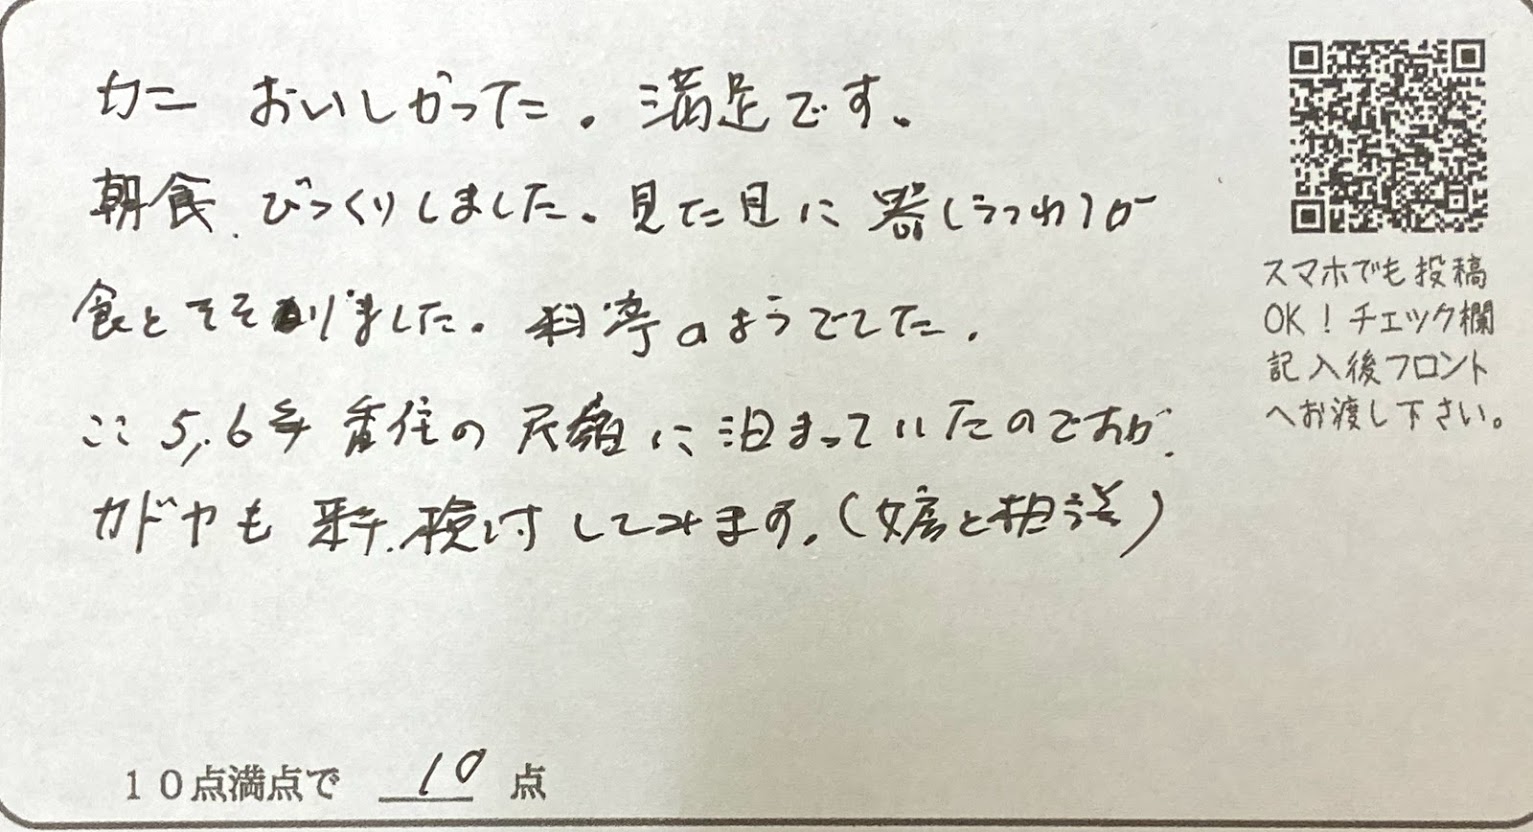 カニ おいしかった。満足です。
朝食、びっくりしました。見た目に器(うつわ)が
食とそそりました。料亭のようでした。
ここ5,6年香住の民宿に泊まっていたのですが、
カドヤも来年、検討してみます。(女房と相談)
10点満点で 10 点
スマホでも投稿
OK!チェック欄
記入後フロント
へお渡し下さい。